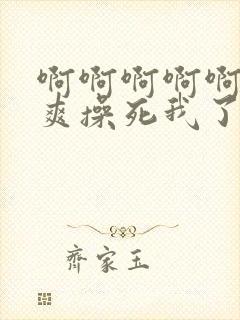 啊啊啊啊啊
爽操死我了
齊家玉